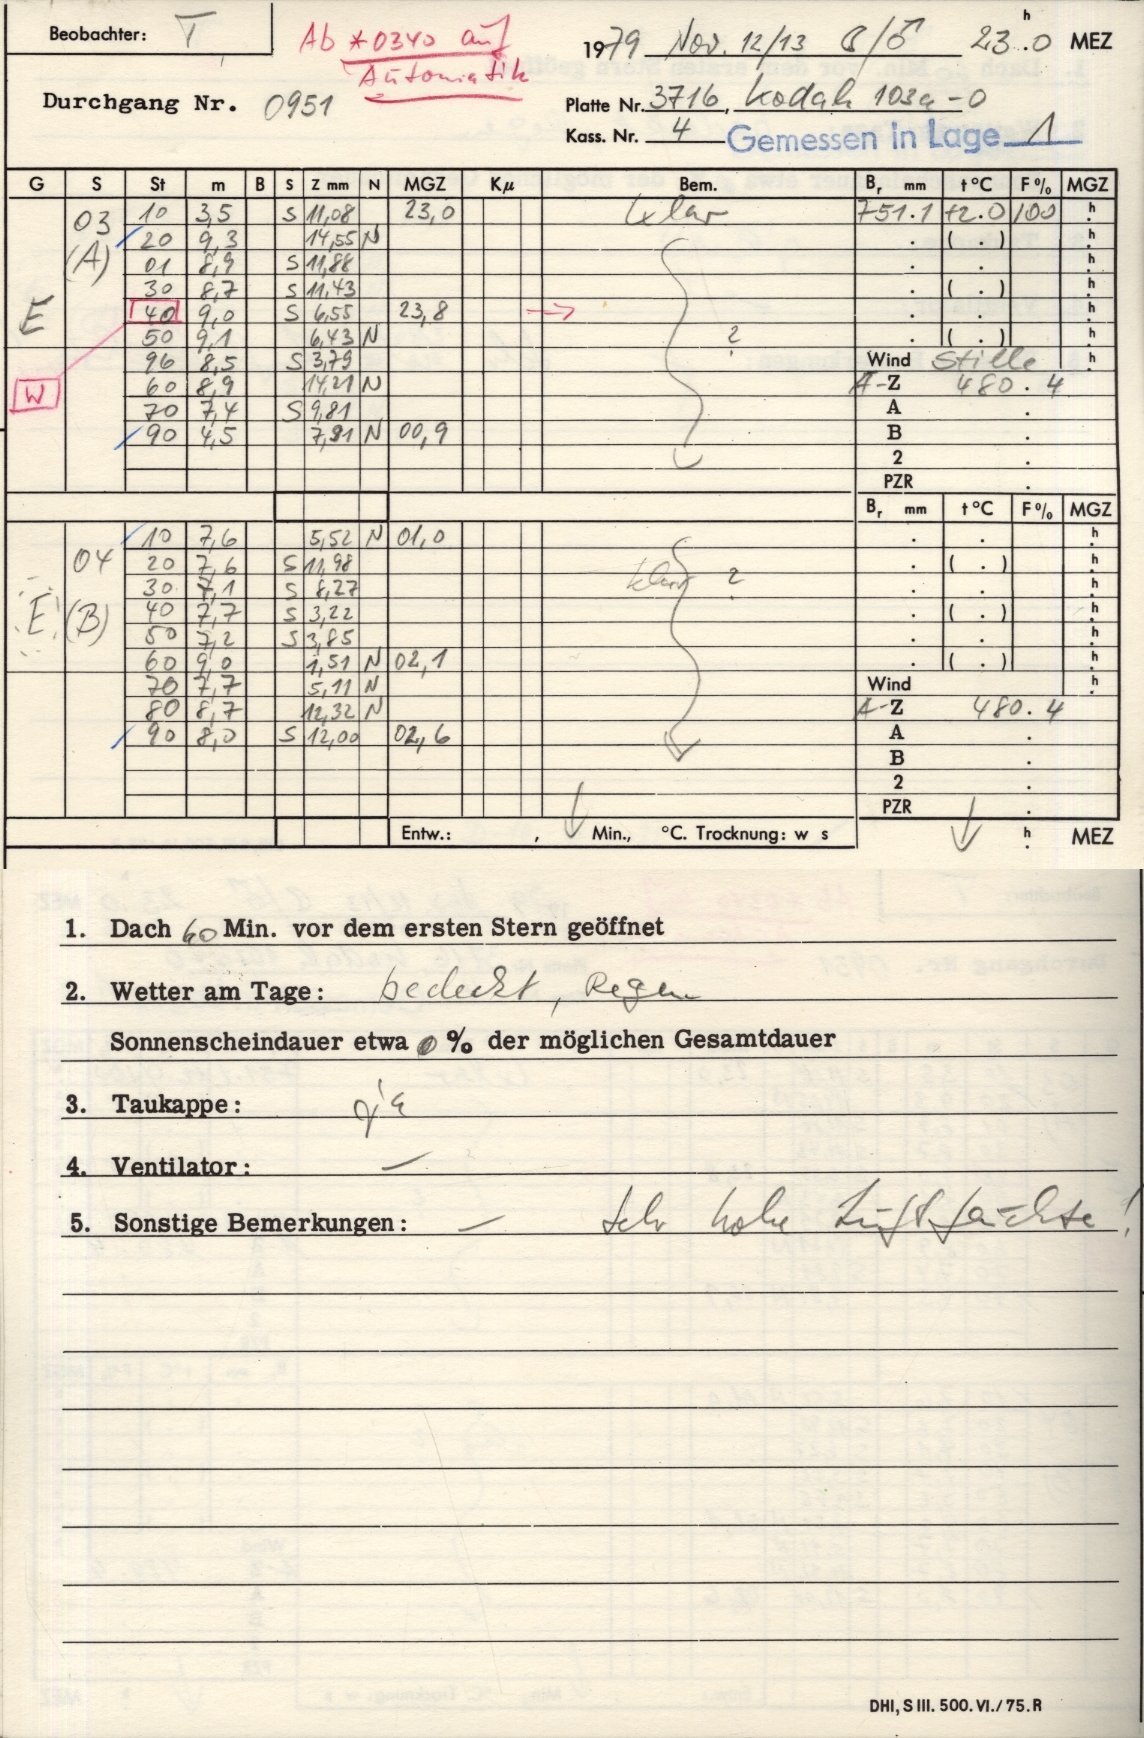 Beobachter: T
Ab *0340 auf
Automatik
1979 Nov. 12/13 23.0 h MEZ
Durchgang Nr. 0951
Platte Nr. 3716, Kodak 103a-O
Kass. Nr. 4 Gemessen in Lage 1
G S St m B S Z mm N MGZ Kµ Bem. Br mm t°C F% MGZ
03 10 3,5 S 11,08 23,0 klar 751.1 +2.0 100 h
(A) 20 9,3 14,55 N . ( . ) h
01 8,9 S 11,88 . . h
30 8,7 S 11,43 . ( . ) h
E 40 9,0 S 6,55 23,8 → . . h
50 9,1 6,43 N ? . ( . ) h
96 8,5 S 3,79 Wind Stille h
W 60 8,9 14,21 N A-Z 480.4
70 7,4 S 9,81 A .
90 4,5 N 00,9 B .
2 .
PZR .
Br mm t°C F% MGZ
04 10 7,6 5,52 N 01,0 . . h
20 7,6 S 11,98 klar ? . ( . ) h
30 7,1 S 8,27 . . h
E (B) 40 7,7 S 3,22 . ( . ) h
50 7,2 S 3,85 . . h
60 9,0 1,51 N 02,1 . ( . ) h
70 7,7 5,11 N Wind h
80 8,7 12,32 N A-Z 480.4
90 8,0 S 12,00 02,6 A .
B .
2 .
PZR .
Entw.: , Min., °C. Trocknung: w s h MEZ
1. Dach 60 Min. vor dem ersten Stern geöffnet
2. Wetter am Tage: bedeckt, Regen
Sonnenscheindauer etwa 0 % der möglichen Gesamtdauer
3. Taukappe: ja
4. Ventilator: —
5. Sonstige Bemerkungen: — Sehr hohe Luftfeuchte!
DHI, S III. 500. VI./75. R